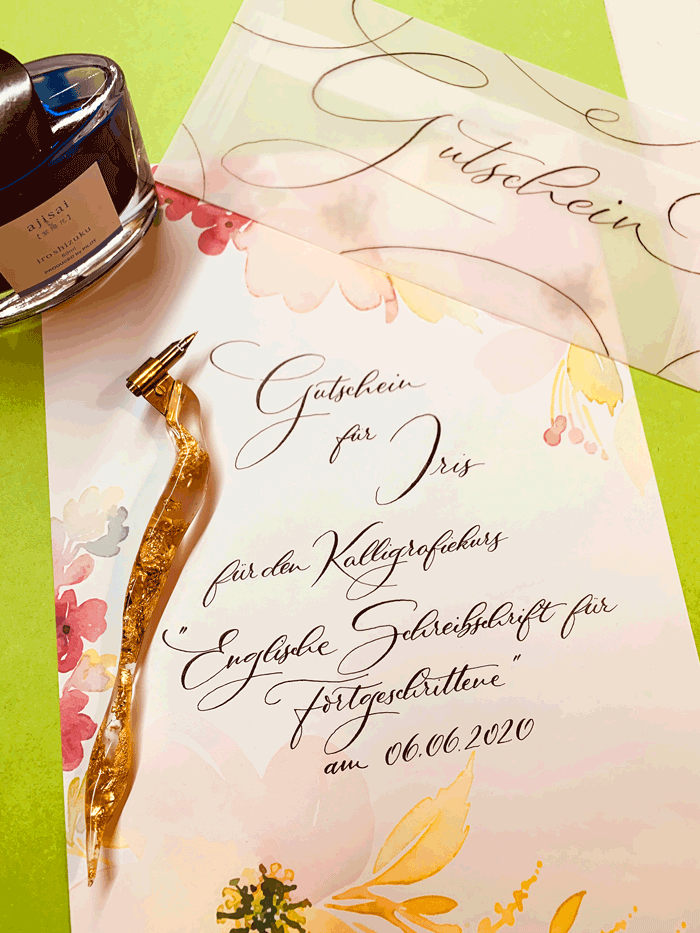 Gutschein
ajisai
iroshizuku
Gutschein
für Iris
für den Kalligrafiekurs
"Englische Schreibschrift für
Fortgeschrittene"
am 06.06.2020